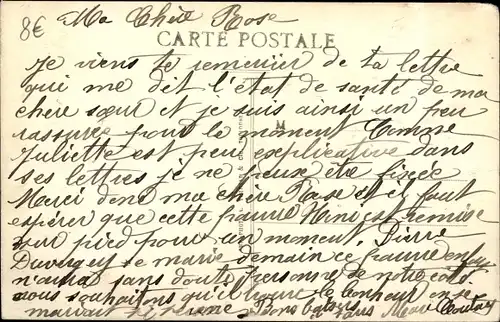 8€
Ma Chère Rose
CARTE POSTALE
Je viens te remercier de ta lettre
qui me dit l'état de santé de ma
chère sœur et je suis ainsi un peu
rassurée pour le moment Comme
Juliette est peu explicative dans
ses lettres je ne peux être fixée
Merci donc ma chère Rose et il faut
espérer que cette pauvre Nini est remise
sur pied pour un moment. Pierre
Duvergey se marie demain ce pauvre
n'aura sans doute personne de notre côté
nous souhaitons qu'il trouve le bonheur en se
mariant bons baisers